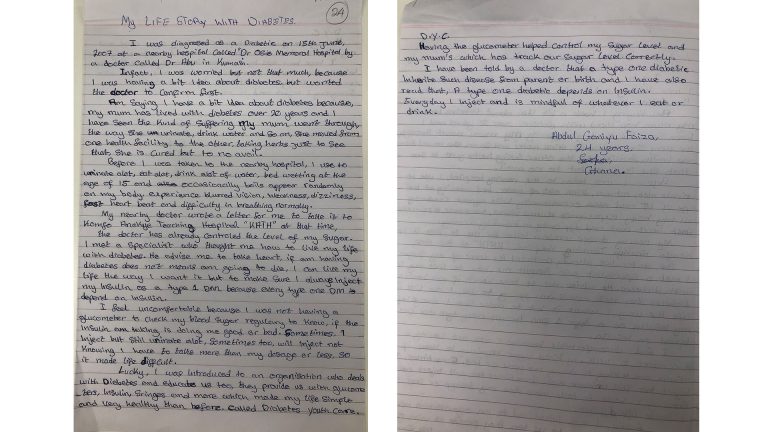 24
My LIFE STORY WITH DIABETES.
I was diagnosed as a Diabetic on 15th June,
2007 at a nearby hospital called "Dr Osei Memorial Hospital by
a doctor called Dr Abu in Kumasi.
Infact, I was worried but not that much, because
I was having a bit idea about diabetes but wanted
the doctor to confirm first.
Am Saying I have a bit Idea about diabetes because,
my mum has lived with diabetes over 20 years and I
have seen the kind of suffering my mum went through,
the way she urinate, drink water and so on, She moved from
one health facility to the other, taking herbs just to See
that, she is Cured but to no avail.
Before I was taken to the nearby hospital, I use to
urinate alot, eat alot, drink alot of water, bed wetting at the
age of 15 and occasionally boils appear randomly
on my body, experience blurred vision, weakness, dizziness,
fast heart beat and difficulty in breathing normally.
My nearby doctor wrote a letter for me to take it to
Komfo Anokye Teaching Hospital "KATH" at that time,
the doctor has already controled the level of my Sugar.
I met a Specialist who thought me how to live my life
with diabetes. He advise me to take heart, if am having
diabetes does not means am going to die, I can live my
life the way I want it but to make Sure I always inject
my Insulin as a type 1 DM because every type one DM is
depend on Insulin.
I feel uncomfortable because I was not having a
glucometer to check my blood Sugar regularly to know, if the
Insulin am taking is doing me good or bad. Sometimes I
inject but still urinate alot, Sometimes too, will inject not
knowing I have to take more than my dosage or less, So
it made life difficult.
Lucky, I was introduced to an organisation who deals
with Diabetes and educate us too, they provide us with glucome
ters, Insulin, Sringes and more which made my life Simple
and very healthy than before. Called Diabetes Youth Care.
D.Y.C.
Having the glucometer helped control my Sugar level and
my mum's which has track our Suggar level Correctly.
I have been told by a doctor that a type one diabetic
inherite Such disease from parent or birth and I have also
read that, A type one diabetic depends on Insulin.
Everyday I inject and is mindful of whatever I eat or
drink.
Abdul Ganiyu Faiza.
24 years.
Ghana.